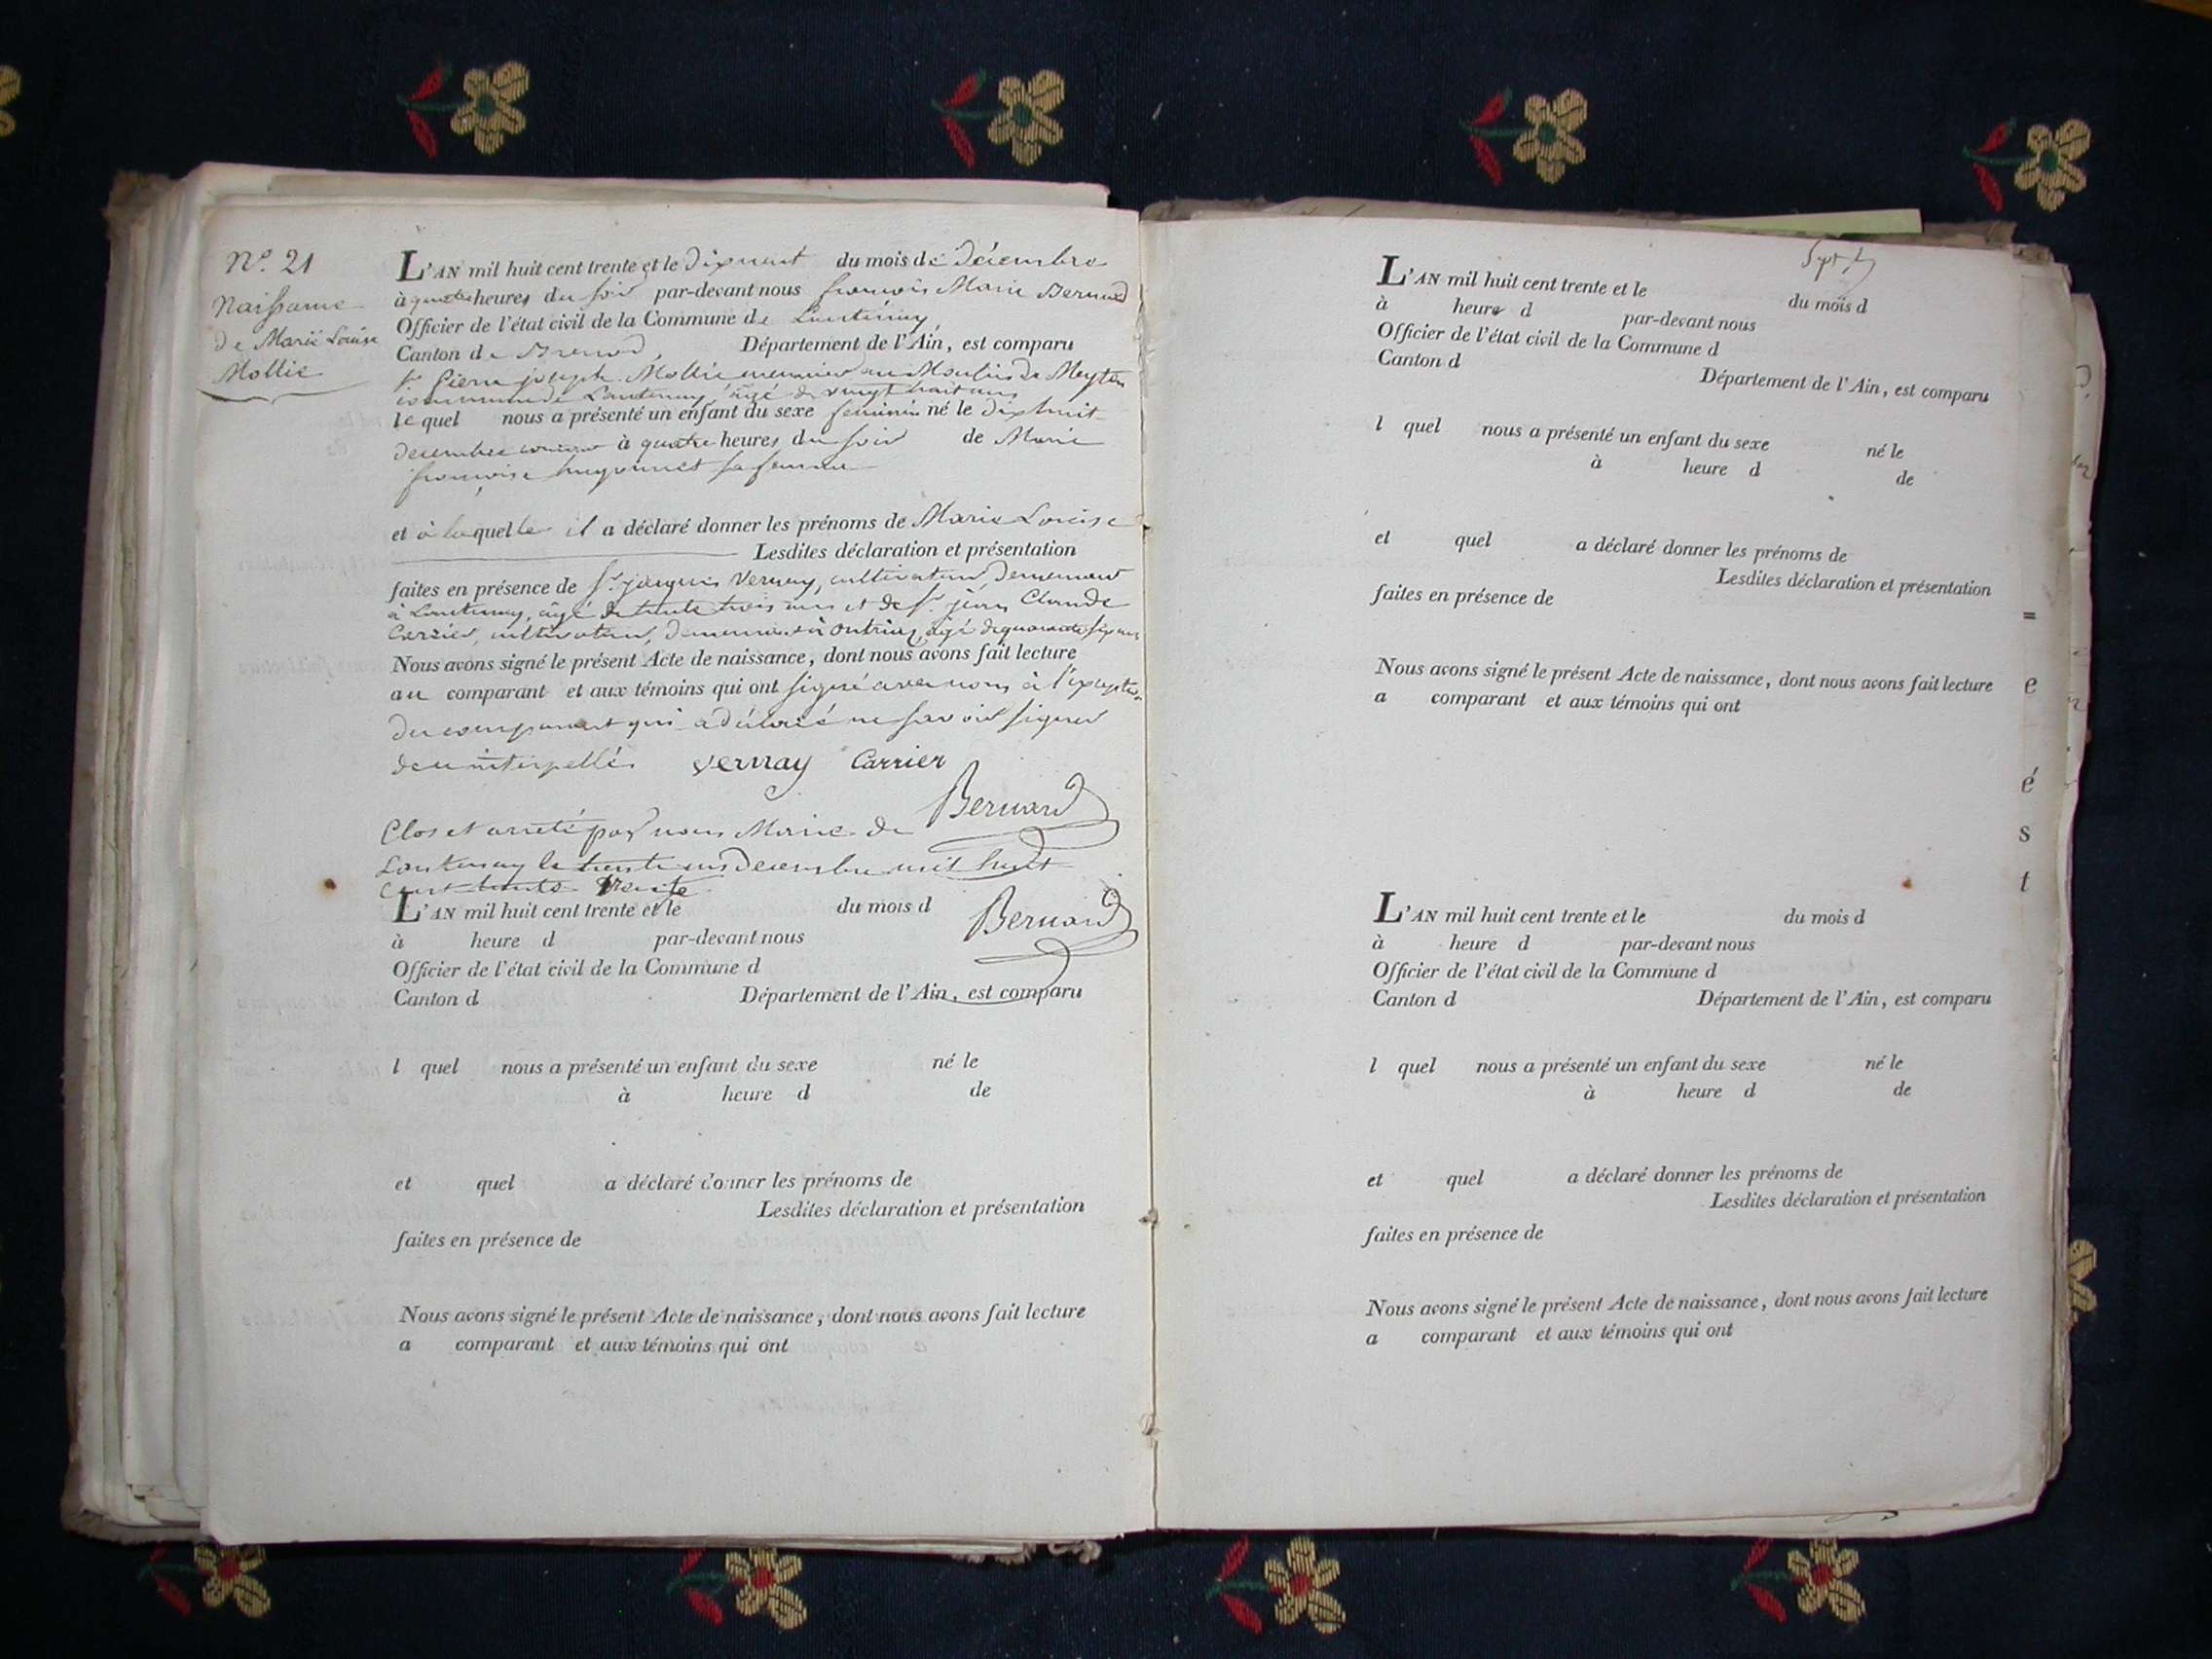 N.° 21
Naissance
de Marie Louise
Mollie
L'AN mil huit cent trente et le dix neuf du mois de Décembre
à quatre heures du soir par-devant nous françois Marie Bernard
Officier de l'état civil de la Commune de Lantenay
Canton de Brenod, Département de l'Ain, est comparu
Sr. Pierre joseph Mollie meunier au Moulin de Meyton
commune de Lantenay, âgé de vingt huit ans
lequel nous a présenté un enfant du sexe feminin né le dix huit
decembre courant à quatre heures du soir de Marie
françoise hugonnet sa femme
et à laquelle il a déclaré donner les prénoms de Marie Louise
Lesdites déclaration et présentation
faites en présence de Sr. jacques Vernay, cultivateur, demeurant
à Lantenay, âgé de trente trois ans et de Sr. jean Claude
Carrier, cultivateur, demeurant à Outriaz, âgé de quarante six ans
Nous avons signé le présent Acte de naissance, dont nous avons fait lecture
au comparant et aux témoins qui ont signé avec nous à l'exception
du comparant qui a déclaré ne savoir signer
de ce interpellé. vernay Carrier
Bernard
Clos et arreté par nous Maire de
Lantenay le trente un decembre mil huit
cent trente
Bernard
L'AN mil huit cent trente et le du mois d
à heure d par-devant nous
Officier de l'état civil de la Commune d
Canton d Département de l'Ain, est comparu
l quel nous a présenté un enfant du sexe né le
à heure d de
et quel a déclaré donner les prénoms de
Lesdites déclaration et présentation
faites en présence de
Nous avons signé le présent Acte de naissance, dont nous avons fait lecture
a comparant et aux témoins qui ont
L'AN mil huit cent trente et le du mois d
à heure d par-devant nous
Officier de l'état civil de la Commune d
Canton d
Département de l'Ain, est comparu
l quel nous a présenté un enfant du sexe né le
à heure d de
et quel a déclaré donner les prénoms de
Lesdites déclaration et présentation
faites en présence de
Nous avons signé le présent Acte de naissance, dont nous avons fait lecture
a comparant et aux témoins qui ont
L'AN mil huit cent trente et le du mois d
à heure d par-devant nous
Officier de l'état civil de la Commune d
Canton d Département de l'Ain, est comparu
l quel nous a présenté un enfant du sexe né le
à heure d de
et quel a déclaré donner les prénoms de
Lesdites déclaration et présentation
faites en présence de
Nous avons signé le présent Acte de naissance, dont nous avons fait lecture
a comparant et aux témoins qui ont
=
e
é
s
t